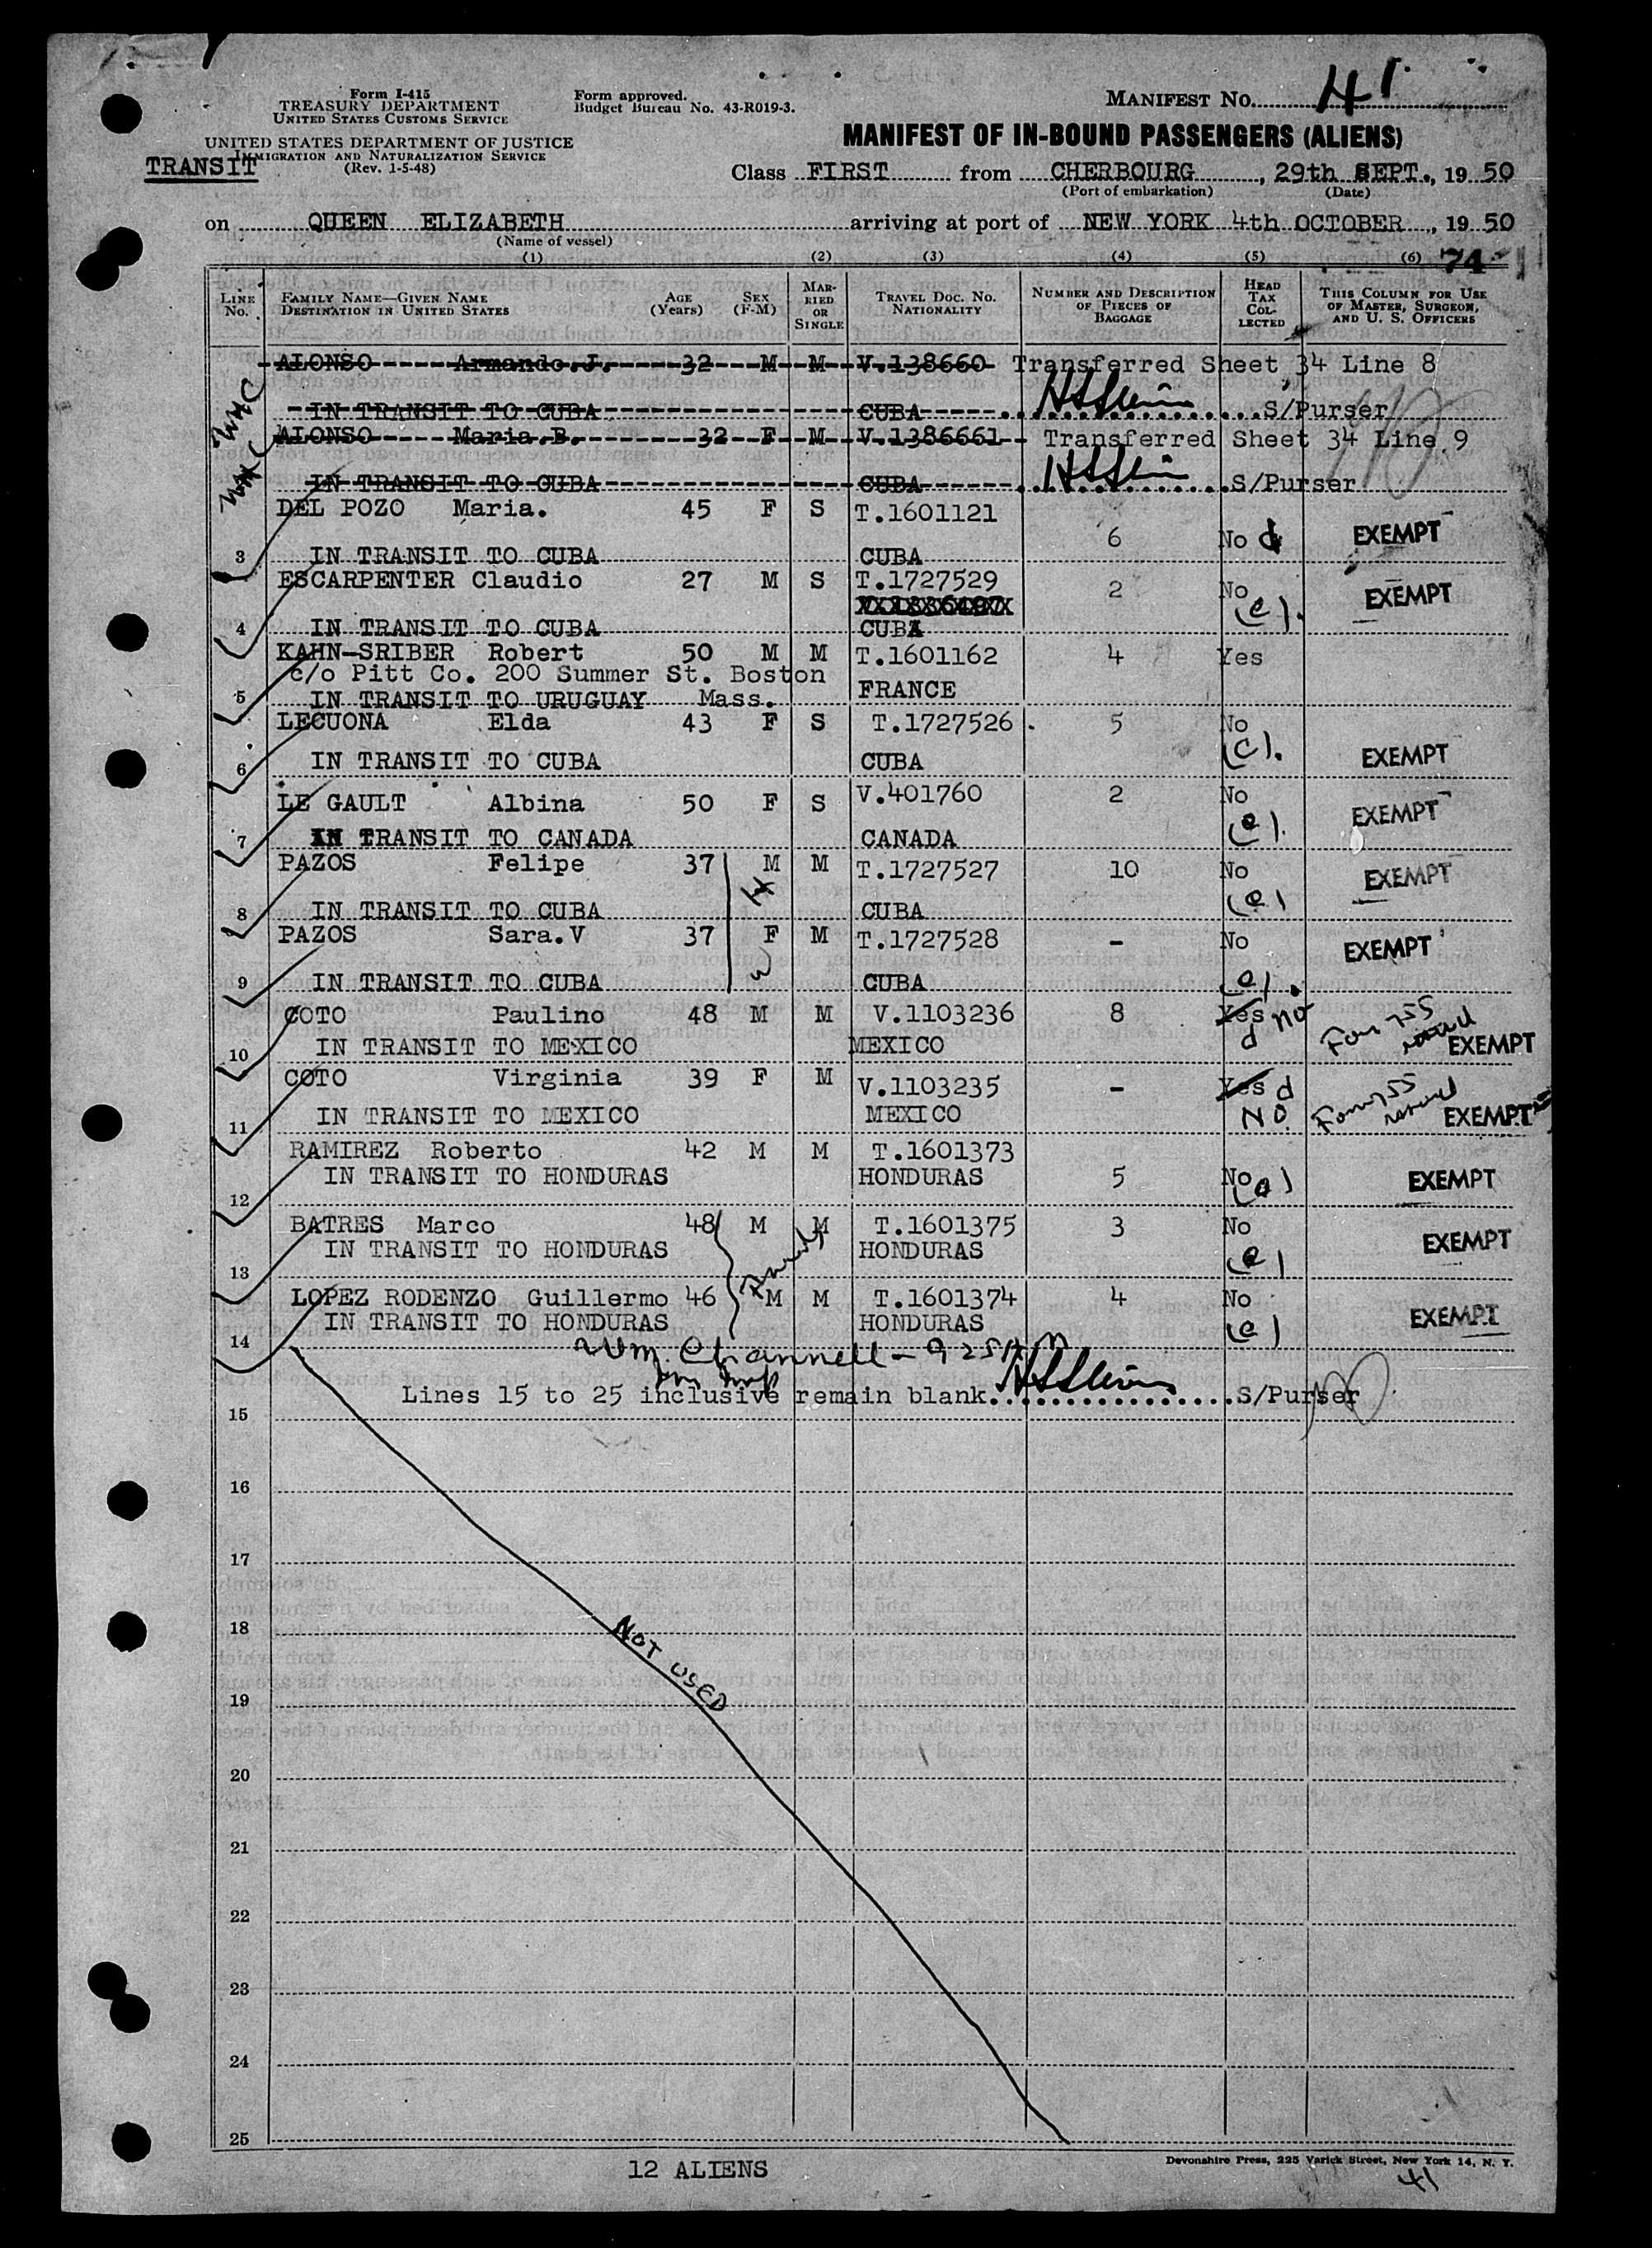 Form I-415
TREASURY DEPARTMENT
UNITED STATES CUSTOMS SERVICE
UNITED STATES DEPARTMENT OF JUSTICE
IMMIGRATION AND NATURALIZATION SERVICE
(Rev. 1-5-48)
TRANSIT
Form approved.
Budget Bureau No. 43-R019-3.
MANIFEST No. 41
MANIFEST OF IN-BOUND PASSENGERS (ALIENS)
Class FIRST from CHERBOURG, 29th SEPT., 19 50
(Port of embarkation) (Date)
on QUEEN ELIZABETH arriving at port of NEW YORK 4th OCTOBER, 19 50
(Name of vessel)
(1) (2) (3) (4) (5) (6) 74
LINE No. FAMILY NAME—GIVEN NAME DESTINATION IN UNITED STATES AGE (Years) SEX (F-M) MARRIED OR SINGLE TRAVEL DOC. NO. NATIONALITY NUMBER AND DESCRIPTION OF PIECES OF BAGGAGE HEAD TAX COLLECTED THIS COLUMN FOR USE OF MASTER, SURGEON, AND U. S. OFFICERS
ALONSO Armando.J. 32 M M V.138660 Transferred Sheet 34 Line 8
IN TRANSIT TO CUBA CUBA S/Purser
ALONSO Maria.B. 32 F M V.1386661 Transferred Sheet 34 Line 9
IN TRANSIT TO CUBA CUBA S/Purser
DEL POZO Maria. 45 F S T.1601121
3 IN TRANSIT TO CUBA CUBA 6 No d EXEMPT
ESCARPENTER Claudio 27 M S T.1727529 2 No (e). EXEMPT
4 IN TRANSIT TO CUBA CUBA
KAHN-SRIBER Robert 50 M M T.1601162 4 Yes
c/o Pitt Co. 200 Summer St. Boston
5 IN TRANSIT TO URUGUAY Mass. FRANCE
LECUONA Elda 43 F S T.1727526. 5 No
6 IN TRANSIT TO CUBA CUBA (c). EXEMPT
LE GAULT Albina 50 F S V.401760 2 No
7 IN TRANSIT TO CANADA CANADA (e). EXEMPT
PAZOS Felipe 37 M M T.1727527 10 No EXEMPT
8 IN TRANSIT TO CUBA CUBA (e)
PAZOS Sara.V 37 F M T.1727528 - No EXEMPT
9 IN TRANSIT TO CUBA CUBA (e).
COTO Paulino 48 M M V.1103236 8 Yes No
10 IN TRANSIT TO MEXICO MEXICO d EXEMPT
COTO Virginia 39 F M V.1103235 - Yes d
11 IN TRANSIT TO MEXICO MEXICO NO EXEMPT
RAMIREZ Roberto 42 M M T.1601373
12 IN TRANSIT TO HONDURAS HONDURAS 5 No (e) EXEMPT
BATRES Marco 48 M M T.1601375 3 No
13 IN TRANSIT TO HONDURAS HONDURAS (e) EXEMPT
LOPEZ RODENZO Guillermo 46 M M T.1601374 4 No
14 IN TRANSIT TO HONDURAS HONDURAS (e) EXEMPT
Wm. Channell
Lines 15 to 25 inclusive remain blank. S/Purser
15
16
17
18
NOT USED
19
20
21
22
23
24
25
12 ALIENS
Devonshire Press, 225 Varick Street, New York 14, N. Y.
41